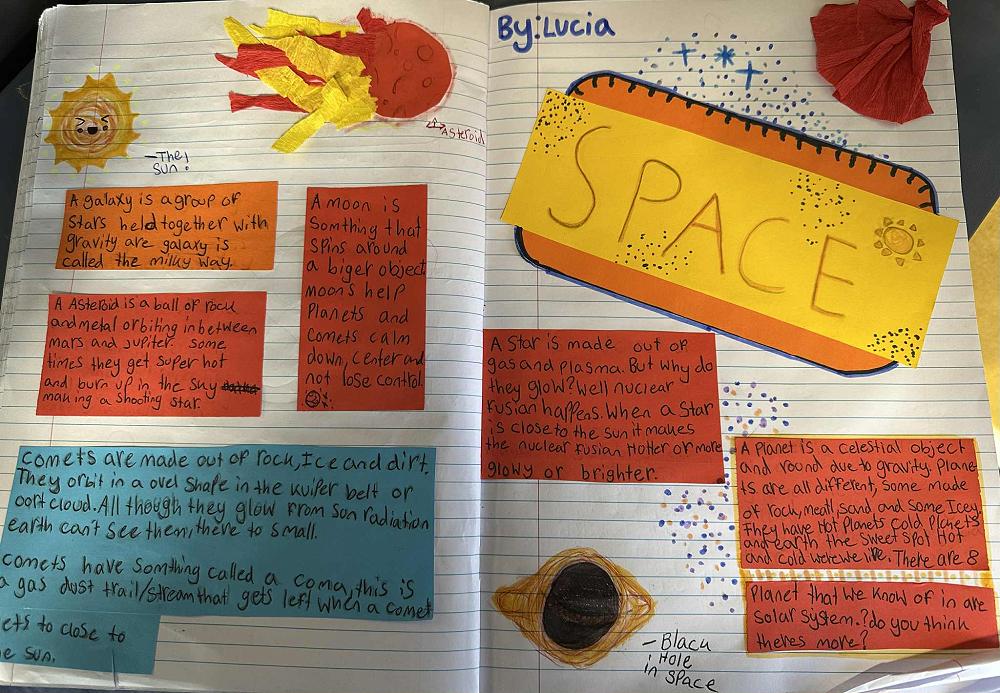 —The!
Sun!
Asteroid
A galaxy is a group of
Stars held together with
gravity are galaxy is
called the milky way.
A moon is
Somthing that
spins around
a biger object
moon's help
Planets and
comets calm
down, center and
not lose control.
A Asteroid is a ball of rock
and metal orbiting in between
mars and jupiter. some
times they get super hot
and burn up in the sky
making a shooting star.
comets are made out of rock, Ice and dirt.
They orbit in a ovel shape in the kuiper belt or
oort cloud. All though they glow from sun radiation
earth can't see them, there to small.
comets have somthing called a coma, this is
a gas dust trail/stream that gets left when a comet
ets to close to
e sun.
By: Lucia
SPACE
A Star is made out of
gas and plasma. But why do
they glow? Well nuclear
fusian happens. When a Star
is close to the sun it makes
the nuclear fusian Hotter or more
glowy or brighter.
A Planet is a celestial object
and round due to gravity. Plane
ts are all different, some made
of rock, meatl, sand and some Icey.
They have Hot Planets cold Planets
and earth the sweet spot Hot
and cold were we live. There are 8
Planet that we know of in are
solar system.? do you think
theres more?
—Black
Hole
in space